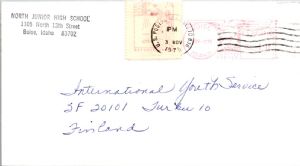 NORTH JUNIOR HIGH SCHOOL
1105 North 13th Street
Boise, Idaho 83702
PM
3 NOV
197
International Youth Service
SF 20101 Turku 10
Finland